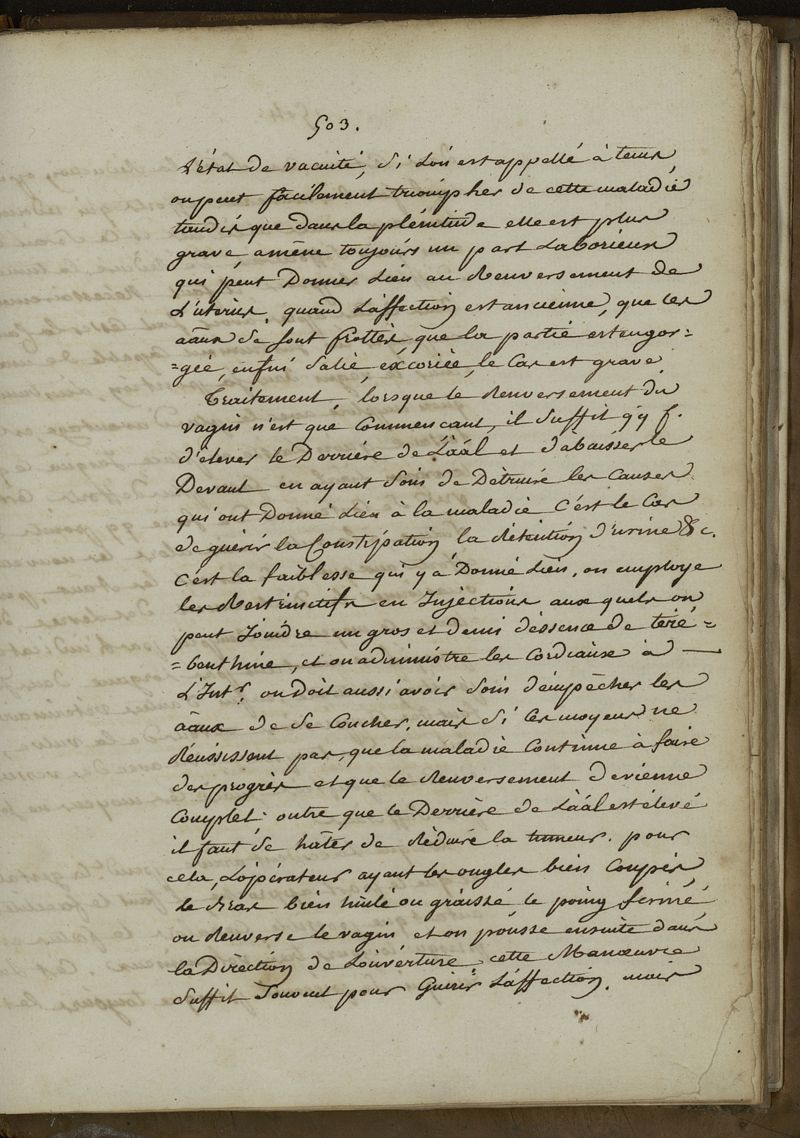 503.
L'état de vacuité, Si L'on est appellé à tems
on peut facilement triompher de cette maladie
tandis que dans la plénitude elle est plus
grave amène toujours un part Laborieux
qui peut Donner Lieu au Renversement de
L'uterus, quand L'affection est ancienne, que les
aãux se sont frottés, que la partie est engor=
=gée, enfin Salie, excoriée, le Cas est grave.
Traitement, lorsque le Renversement du
vagin n'est que Commencant, il Suffit qq f.
d'élever le Derrière de L'aãl et d'abaisser le
Devant en ayant Soin de Détruire les Causes
qui ont Donné Lieu à la maladie C'est le Cas
de guérir la Constipation la Rétention d'urine &c.
C'est la faiblesse qui y a Donné Lieu, on employe
les Restrinctifs en Injections aux quels on
peut Joindre un gros et demi d'essence de teré=
=benthine, et on administre les Cordiaux à
L'Intr. on Doit aussi avoir Soin d'empêcher les
aãux de se Coucher, mais Si les moyens ne
Réussissent pas, que la maladie Continue à faire
des progrès et que le Renversement devienne
Complet: outre que le Derrière de L'aãl est élevé
il faut se hâter de Réduire la tumeur. pour
cela, L'opérateur ayant les ongles bien Coupés,
le Bras bien huilé ou graissé, le poing fermé,
on Renverse le vagin et on pousse ensuite dans
la Direction de L'ouverture, cette Manœuvre
Suffit Souvent pour Guérir L'affection. mais